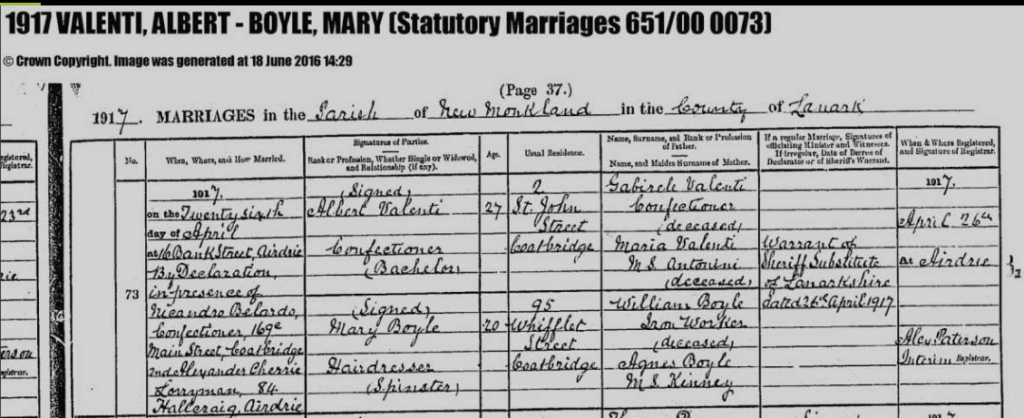 1917 VALENTI, ALBERT - BOYLE, MARY (Statutory Marriages 651/00 0073)
© Crown Copyright. Image was generated at 18 June 2016 14:29
(Page 37.)
1917. MARRIAGES in the Parish of New Monkland in the County of Lanark
No.
When, Where, and How Married.
Signatures of Parties.
Rank or Profession, Whether Single or Widowed, and Relationship (if any).
Age.
Usual Residence.
Name, Surname, and Rank or Profession of Father.
Name, and Maiden Surname of Mother.
If a regular Marriage, Signatures of officiating Minister and Witnesses.
If irregular, Date of Decree of Declarator or of Sheriff's Warrant.
When & Where Registered, and Signature of Registrar.
73
1917.
on the Twenty sixth
day of April
at 16 Bank Street, Airdrie
By Declaration,
in presence of
Belardo,
Confectioner, 169c
Main Street, Coatbridge
and Alexander Cherrie
Lorryman, 84
Hallcraig, Airdrie
(Signed)
Albert Valenti
Confectioner
(Bachelor)
(Signed)
Mary Boyle
Hairdresser
(Spinster)
27
20
2
St. John
Street
Coatbridge
95
Whifflet
Street
Coatbridge
Gabirele Valenti
Confectioner
(deceased)
Maria Valenti
M.S. Antonini
(deceased)
William Boyle
Iron Worker
(deceased)
Agnes Boyle
M.S. Kinney
Warrant of
Sheriff Substitute
of Lanarkshire
dated 26th April 1917
1917.
April 26th
at Airdrie
Alex Paterson
Interim Registrar.
23rd